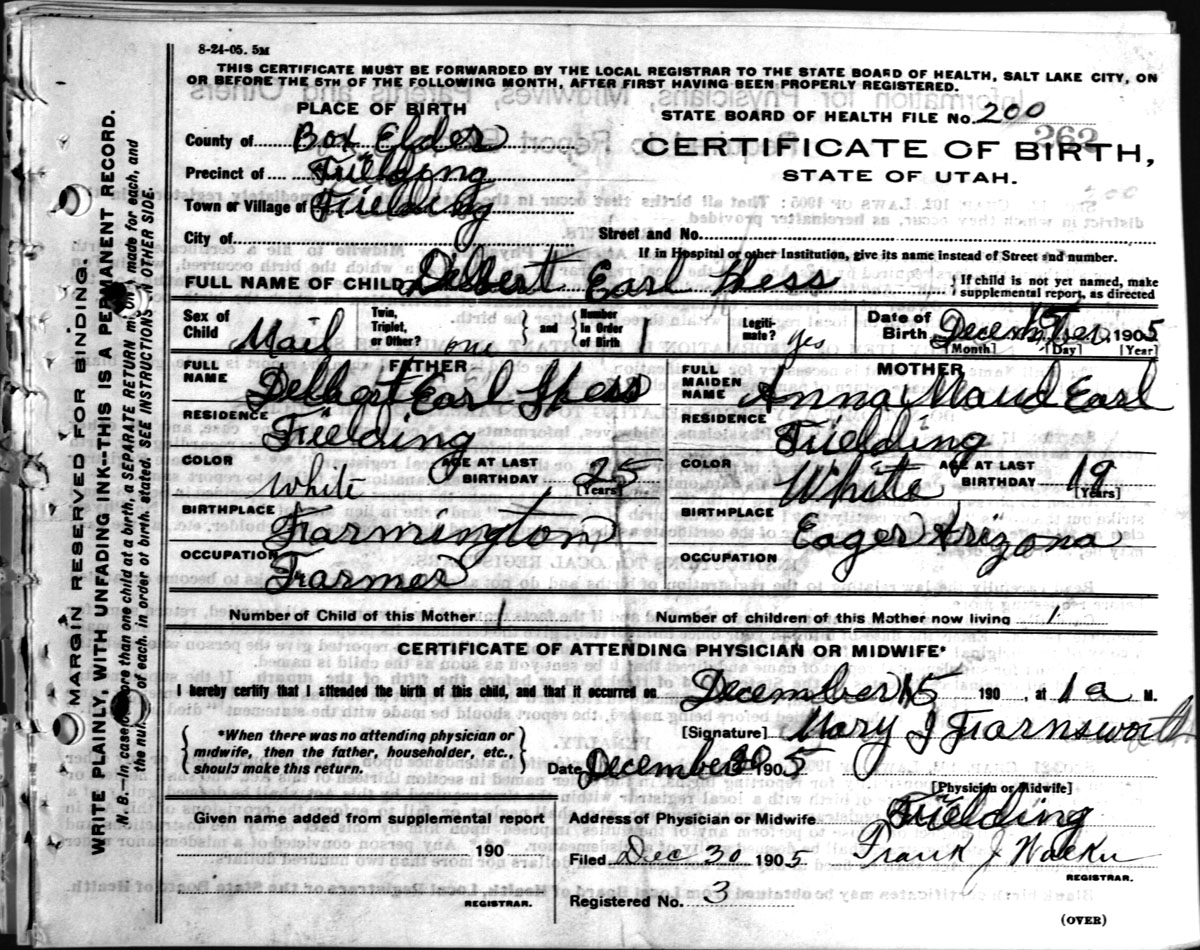 8-24-05. 5M
THIS CERTIFICATE MUST BE FORWARDED BY THE LOCAL REGISTRAR TO THE STATE BOARD OF HEALTH, SALT LAKE CITY, ON
OR BEFORE THE 5TH OF THE FOLLOWING MONTH, AFTER FIRST HAVING BEEN PROPERLY REGISTERED.
PLACE OF BIRTH
STATE BOARD OF HEALTH FILE No. 200
262
County of Box Elder
CERTIFICATE OF BIRTH,
STATE OF UTAH.
Precinct of Fielding
Town or Village of Fielding
City of Street and No.
If in Hospital or other Institution, give its name instead of Street and number.
FULL NAME OF CHILD Delbert Earl Hess { If child is not yet named, make
supplemental report, as directed
Sex of Child Mail Twin, Triplet, or Other? one } and { Number in Order of Birth 1 Legiti-mate? yes Date of Birth December 15, 1905
[Month] [Day] [Year]
FATHER
FULL NAME Delbert Earl Hess
MOTHER
FULL MAIDEN NAME Anna Maud Earl
RESIDENCE Fielding
RESIDENCE Fielding
COLOR White AGE AT LAST BIRTHDAY 25 [Years]
COLOR White AGE AT LAST BIRTHDAY 19 [Years]
BIRTHPLACE Farmington
BIRTHPLACE Eager Arizona
OCCUPATION Farmer
OCCUPATION
Number of Child of this Mother 1 Number of children of this Mother now living 1
CERTIFICATE OF ATTENDING PHYSICIAN OR MIDWIFE*
I hereby certify that I attended the birth of this child, and that it occurred on December 15 190 , at 1 a M.
{ *When there was no attending physician or
midwife, then the father, householder, etc.,
should make this return. }
[Signature] Mary J Farnsworth
Date December 20 1905
[Physician or Midwife]
Given name added from supplemental report
190
REGISTRAR.
Address of Physician or Midwife Fielding
Filed Dec 30 1905 Frank J
REGISTRAR.
Registered No. 3
(OVER)
MARGIN RESERVED FOR BINDING.
WRITE PLAINLY, WITH UNFADING INK--THIS IS A PERMANENT RECORD.
N. B.—In case of more than one child at a birth, a SEPARATE RETURN must be made for each, and
the number of each, in order of birth, stated. SEE INSTRUCTIONS ON OTHER SIDE.